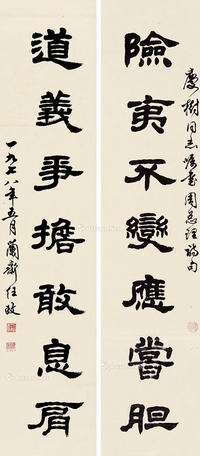 慶樹同志囑書周總理詩句
險夷不變應嘗胆
道義爭擔敢息肩
一九七八年五月蘭齋任政